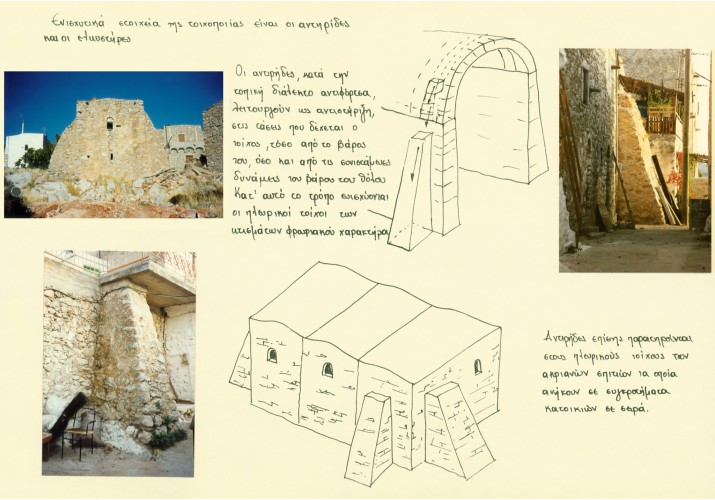 Ενισχυτικά στοιχεία της τοιχοποιίας είναι οι αντηρίδες
και οι ελκυστήρες
Οι αντηρίδες, κατά την
τοπική διάλεκτο αντιφόρτσα,
λειτουργούν ως αντιστήριξη,
στις τάσεις που δέχεται ο
τοίχος, τόσο από το βάρος
του, όσο και από τις συνιστάμενες
δυνάμεις του βάρους του θόλου
Κατ' αυτό το τρόπο ενισχύονται
οι πλευρικοί τοίχοι των
κτισμάτων φρουριακού χαρακτήρα
Αντηρίδες επίσης παρατηρούνται
στους πλευρικούς τοίχους των
ακριανών σπιτιών τα οποία
ανήκουν σε συγκροτήματα
κατοικιών σε σειρά.